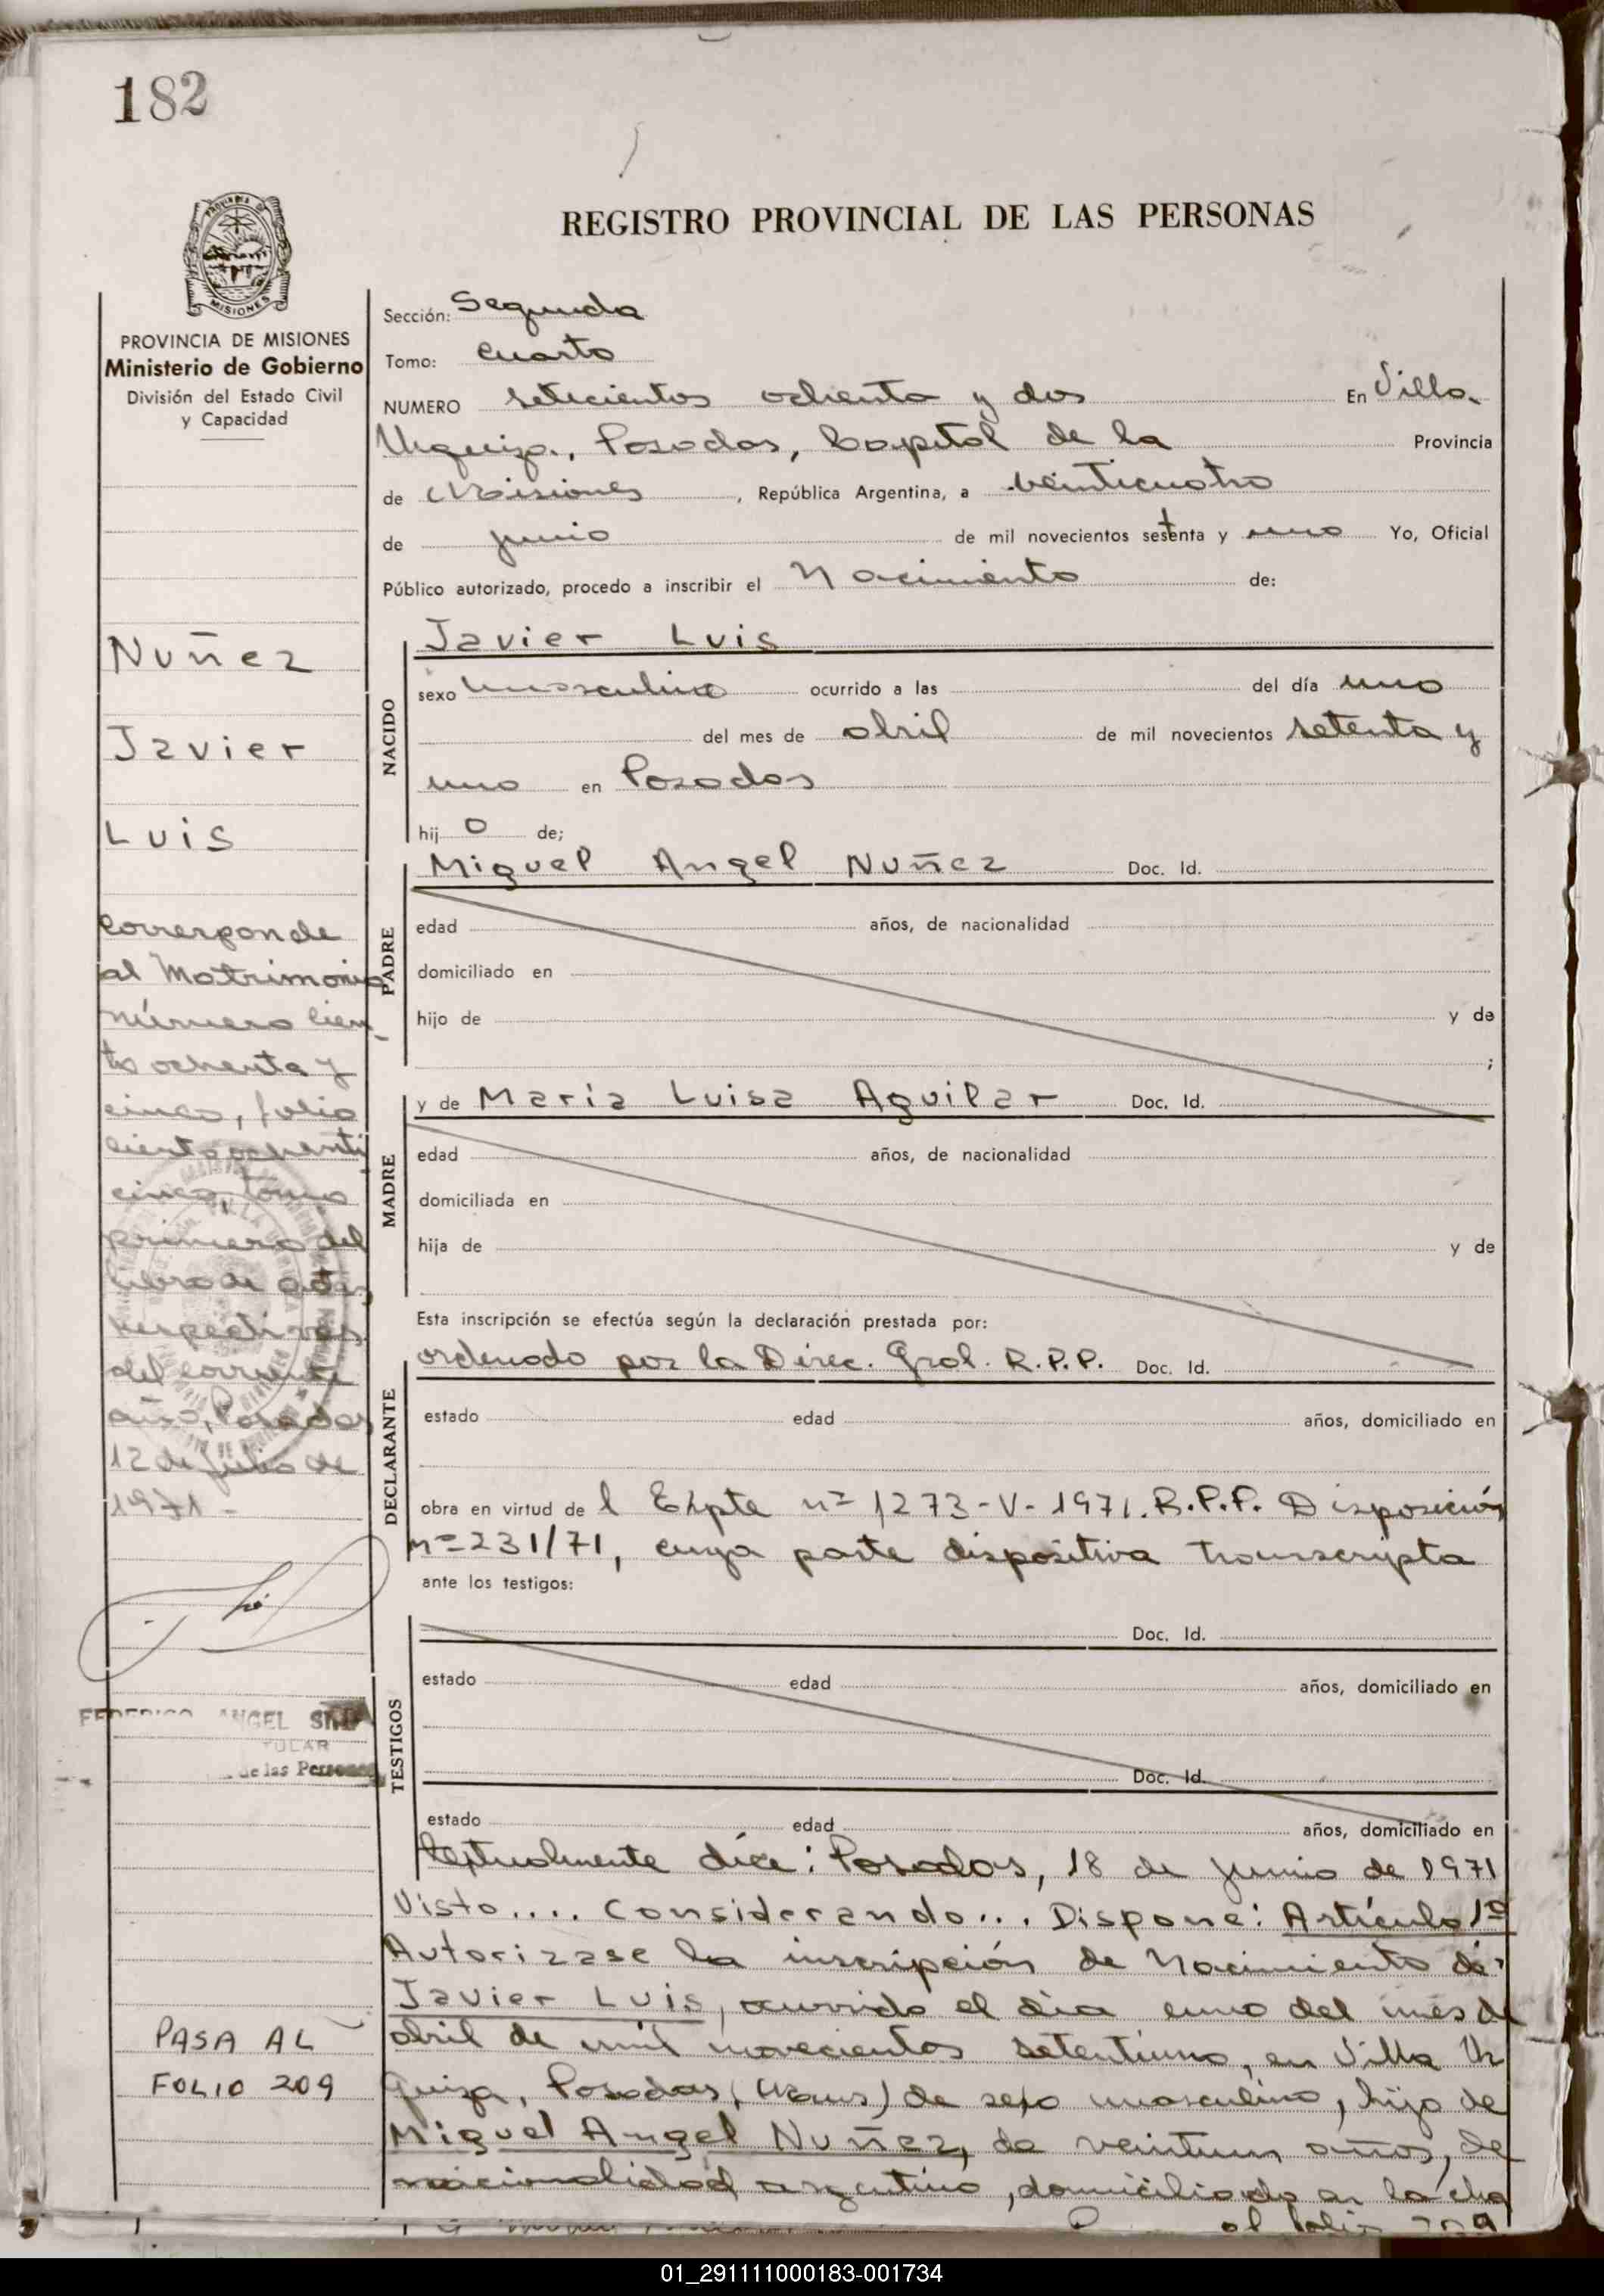 182
REGISTRO PROVINCIAL DE LAS PERSONAS
MISIONES
PROVINCIA DE MISIONES
Ministerio de Gobierno
División del Estado Civil
y Capacidad
Nuñez
Javier
Luis
Corresponde
al Matrimonio
número cien
to ochenta y
cinco, folio
ciento ochenti
cinco, tomo
primero del
libro de actas
respectivas
del corriente
año, Posadas,
12 de Julio de
1971 -
FEDERICO ANGEL
de las Personas
PASA AL
FOLIO 209
Sección: Segunda
Tomo: cuarto
NUMERO setecientos ochenta y dos En Villa
Urquiza, Posadas, Capital de la Provincia
de Misiones, República Argentina, a veinticuatro
de junio de mil novecientos setenta y uno Yo, Oficial
Público autorizado, procedo a inscribir el Nacimiento de:
NACIDO
Javier Luis
sexo masculino ocurrido a las del día uno
del mes de abril de mil novecientos setenta y
uno en Posadas
hij o de;
PADRE
Miguel Angel Nuñez Doc. Id.
edad años, de nacionalidad
domiciliado en
hijo de y de
;
MADRE
y de María Luisa Aguilar Doc. Id.
edad años, de nacionalidad
domiciliada en
hija de y de
Esta inscripción se efectúa según la declaración prestada por:
DECLARANTE
ordenado por la Direc. Gral. R.P.P. Doc. Id.
estado edad años, domiciliado en
obra en virtud de l Expte nº 1273-V-1971. R.P.P. Disposición
nº 231/71, cuya parte dispositiva transcripta
ante los testigos:
TESTIGOS
Doc. Id.
estado edad años, domiciliado en
Doc. Id.
estado edad años, domiciliado en
textualmente dice: Posadas, 18 de junio de 1971
Visto.... Considerando... Dispone: Artículo 1º
Autorizase la inscripción de Nacimiento de
Javier Luis, ocurrido el día uno del mes de
abril de mil novecientos setentiuno, en Villa Ur
quiza, Posadas, (Mnes) de sexo masculino, hijo de
Miguel Angel Nuñez, de veintiun años, de
nacionalidad argentino, domiciliado en la cha
al folio 209
01_291111000183-001734